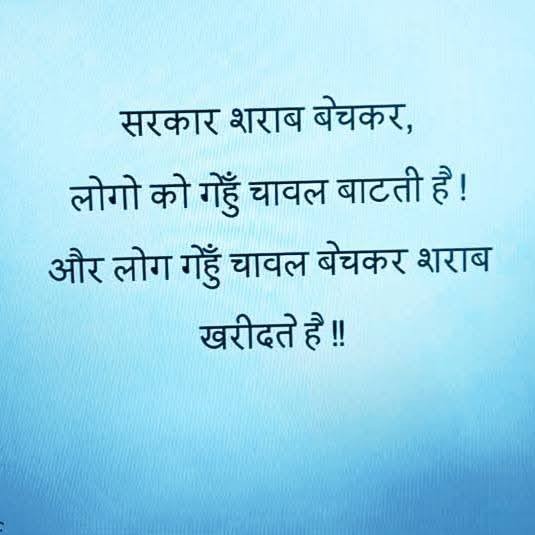 सरकार शराब बेचकर,
लोगो को गेहुँ चावल बाटती है !
और लोग गेहुँ चावल बेचकर शराब
खरीदते है !!